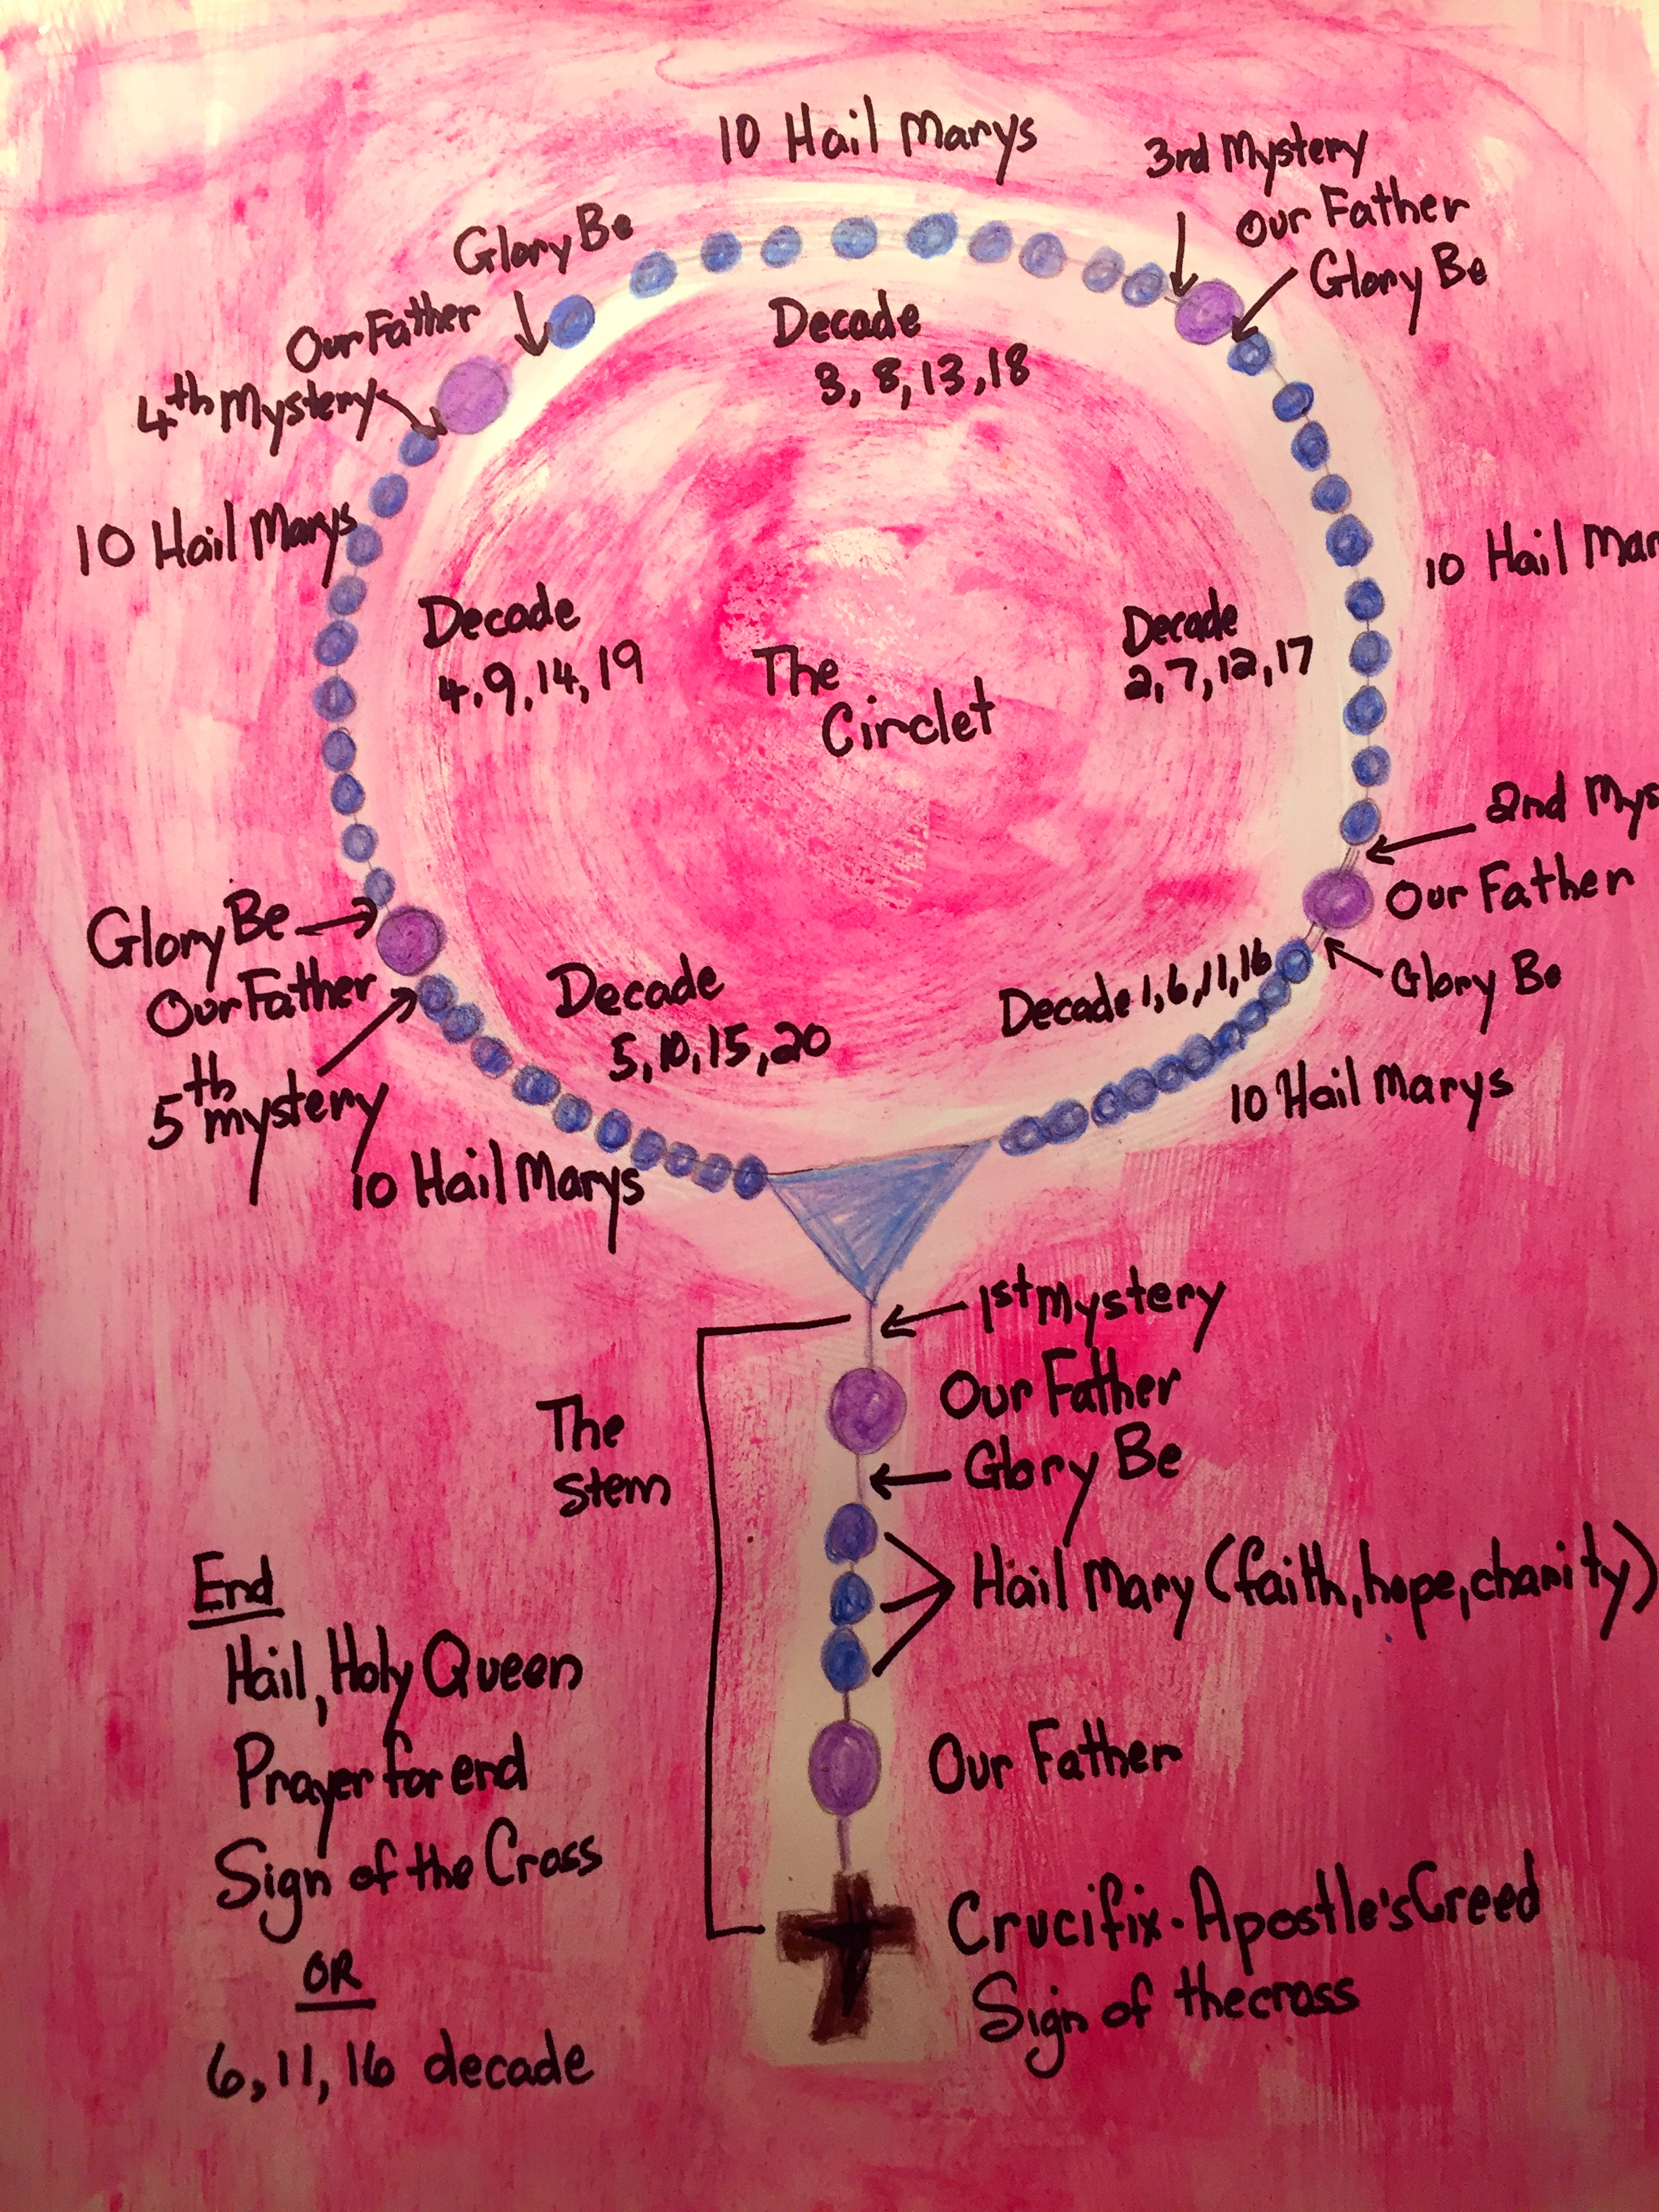 10 Hail Marys
3rd Mystery
Our Father
Glory Be
Glory Be
Our Father
4th Mystery
Decade
3, 8, 13, 18
10 Hail Marys
10 Hail Mar
Decade
4, 9, 14, 19
The
Circlet
Decade
2, 7, 12, 17
2nd Mys
Our Father
Glory Be
Glory Be
Our Father
5th mystery
Decade
5, 10, 15, 20
Decade 1, 6, 11, 16
10 Hail Marys
10 Hail Marys
1st Mystery
Our Father
Glory Be
The
stem
Hail Mary (faith, hope, charity)
Our Father
Crucifix - Apostle's Creed
Sign of the cross
End
Hail, Holy Queen
Prayer for end
Sign of the Cross
OR
6, 11, 16 decade